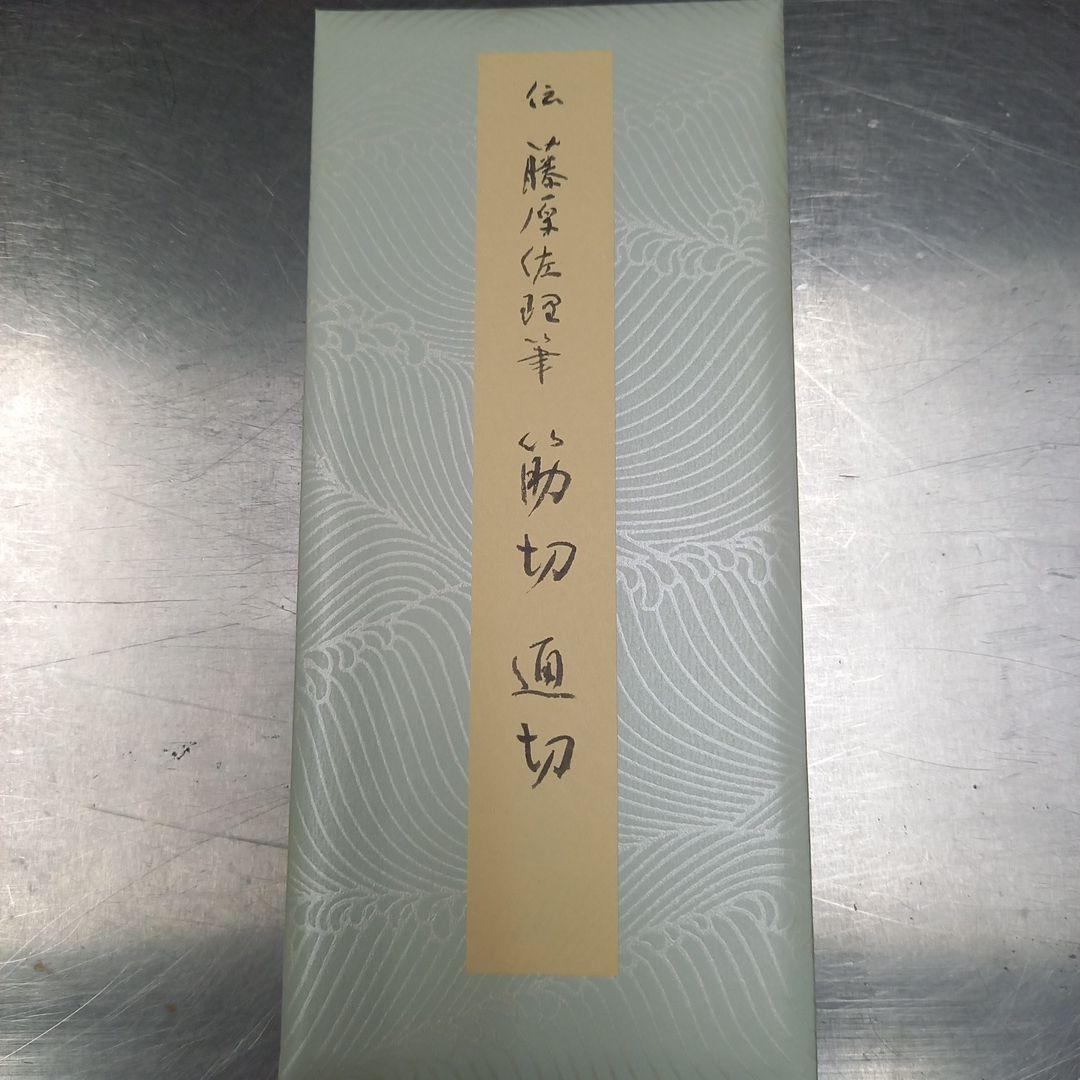 伝 藤原佐理筆 筋切 通切